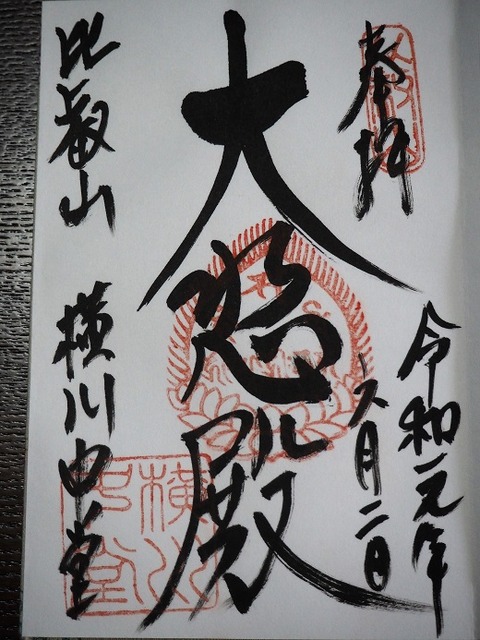 奉拝
令和元年
六月二日
大悲殿
比叡山 横川中堂
横川
中堂